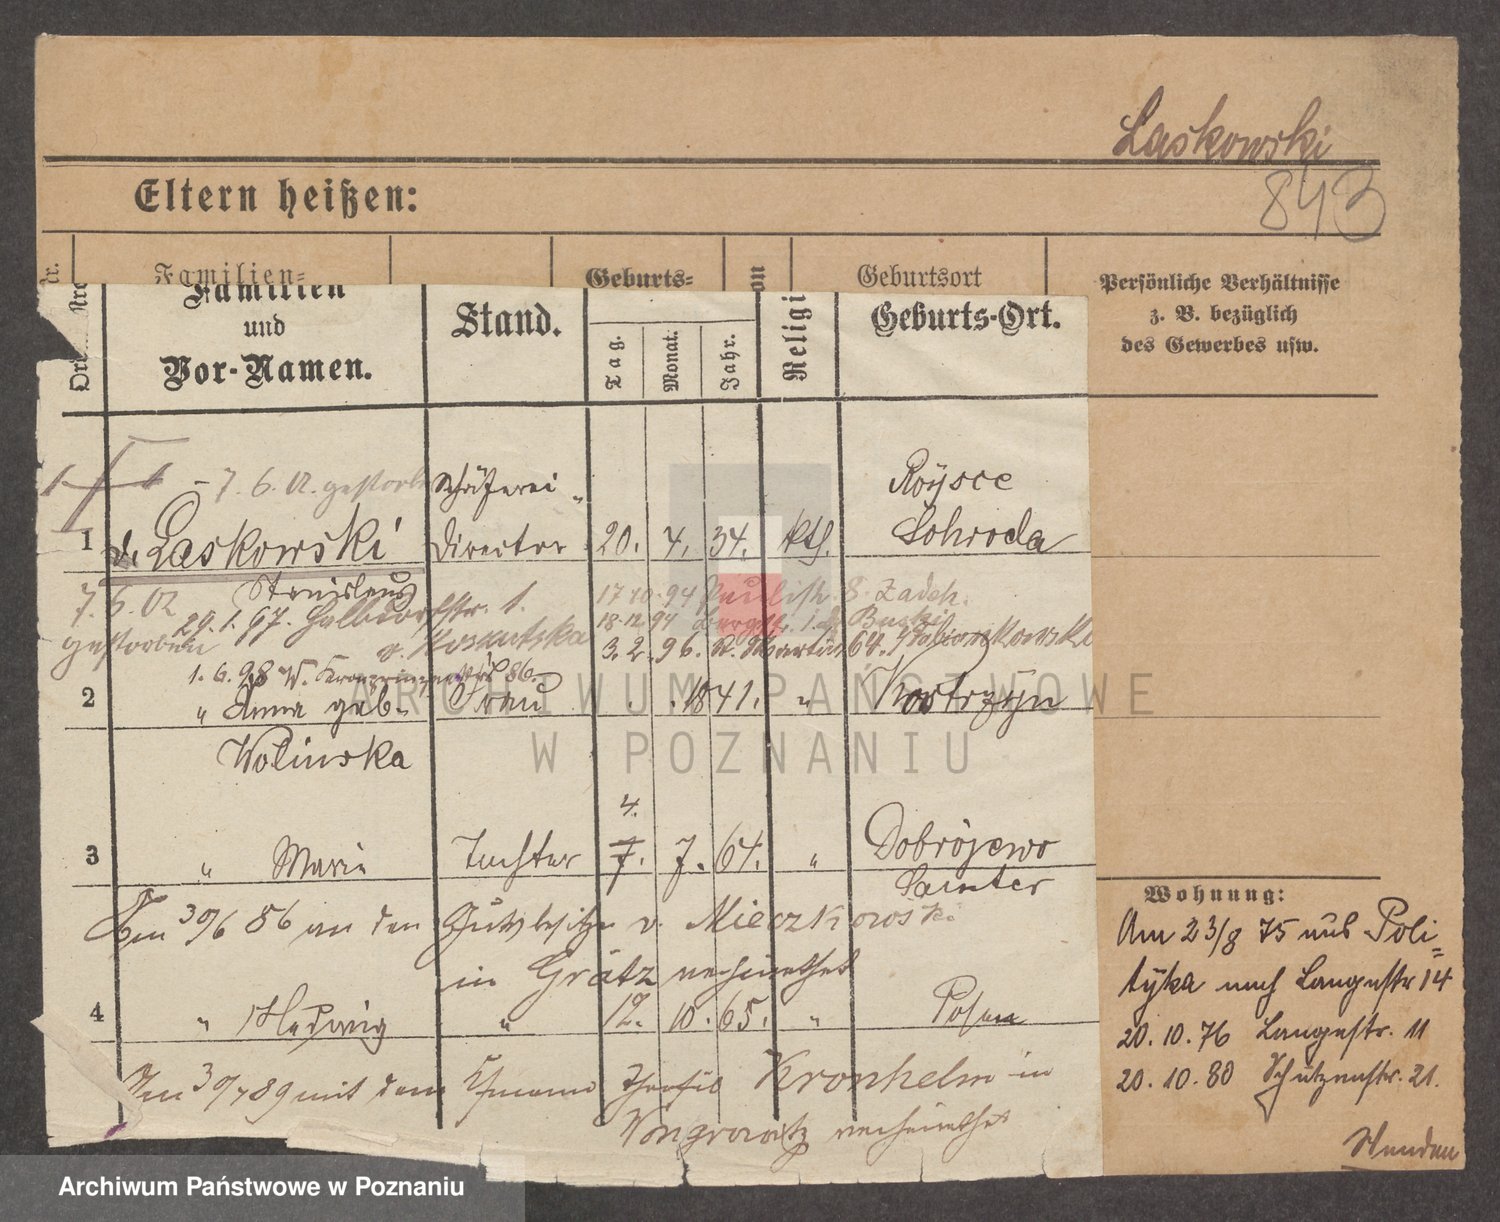 Laskowski
843
Eltern heißen:
Familien=
Geburts=
Geburtsort
Persönliche Verhältnisse
z. B. bezüglich
des Gewerbes usw.
Familien
und
Vor-Namen.
Stand.
Tag.
Monat.
Jahr.
Religi
Geburts-Ort.
- 7. 6. 02. gestorben
Schäferei-
1 v. Laskowski Director 20. 4. 34. kth. Schroda
Stanislaus
7. 6. 02
gestorben
29. 1. 97. Halbdorfstr. 1.
17 10. 94
18. 12. 94
3. 2. 96. St. Martin 64.
1. 6. 98 W. Kronprinzenstr. 86.
2 " Anna geb. Frau 1841. " Kostrzyn
Wolinska
4.
3 " Marie Tochter 7. 7. 64. " Dobrojewo
Samter
Am 30/6 86 an den Gutsbesitzer v. Mieczkowski
in Grätz verheirathet
4 " Hedwig " 12. 10. 65. " Posen
Am 30/7 89 mit dem Kfmann Theofil Kronhelm in
Wongrowitz verheirathet
Wohnung:
Am 23/8 75 aus Poli=
tyka nach Langestr 14
20. 10. 76 Langestr. 11
20. 10. 80 Schützenstr. 21.
Wenden
ARCHIWUM PAŃSTWOWE
W POZNANIU
Archiwum Państwowe w Poznaniu